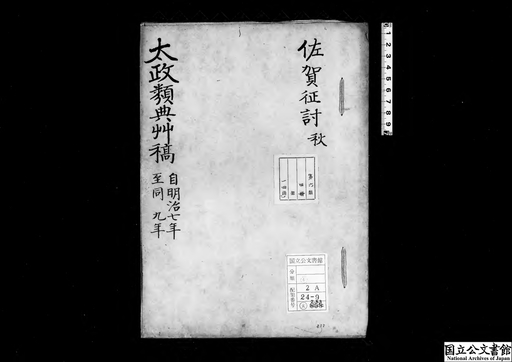 佐賀征討 秋
太政類典艸稿
自明治七年
至同 九年
国立公文書館
分類
配架番号
2 A
24-9
1 2 3 4 5 6 7 8 9
国立公文書館
National Archives of Japan